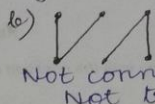 b)
Not conn
Not t